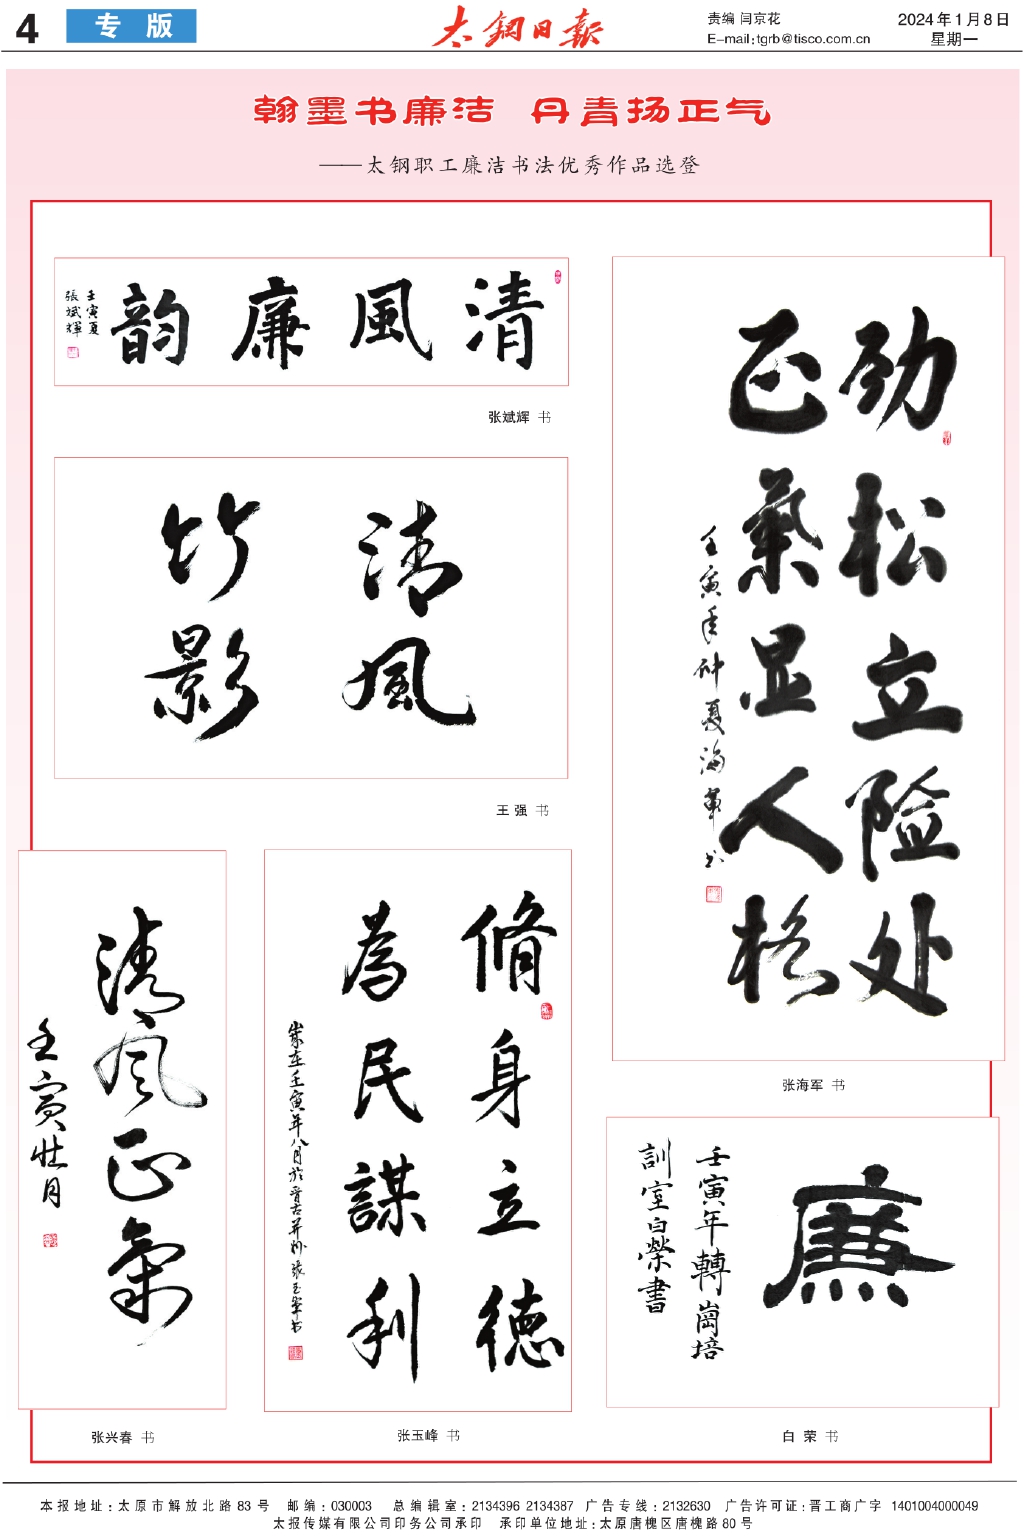 4
专 版
太钢日报
责编 闫京花
E-mail:tgrb@tisco.com.cn
2024年1月8日
星期一
翰墨书廉洁 丹青扬正气
——太钢职工廉洁书法优秀作品选登
清風廉韵
壬寅夏
張斌輝
张斌辉 书
清風
竹影
王 强 书
劲松立险处
正氣显人格
壬寅年仲夏海軍书
张海军 书
清风正氣
壬寅壮月
张兴春 书
脩身立德
為民謀利
歲在壬寅年八月於晋古并州張玉峰书
张玉峰 书
廉
壬寅年轉崗培
訓室白榮書
白 荣 书
本报地址:太原市解放北路83号 邮编:030003 总编辑室:2134396 2134387 广告专线:2132630 广告许可证:晋工商广字 1401004000049
太报传媒有限公司印务公司承印 承印单位地址:太原唐槐区唐槐路80号